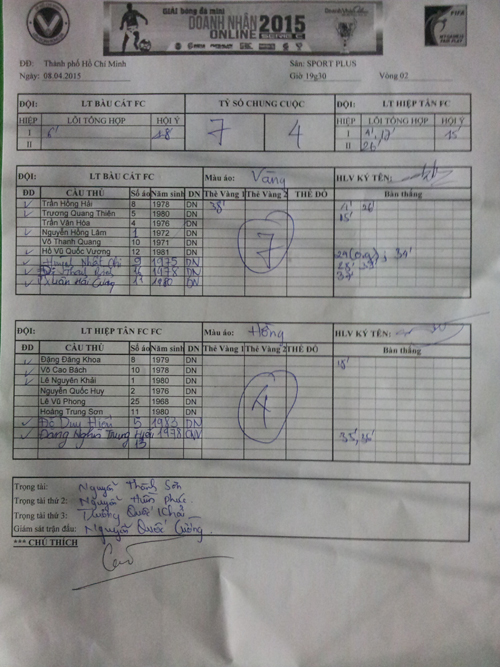 GIẢI bóng đá mini
DOANH NHÂN 2015
ONLINE SERIE C
FIFA
ĐĐ: Thành phố Hồ Chí Minh Sân: SPORT PLUS
Ngày: 08.04.2015 Giờ 19g30 Vòng 02
ĐỘI: LT BÀU CÁT FC TỶ SỐ CHUNG CUỘC ĐỘI: LT HIỆP TÂN FC
HIỆP LỖI TỔNG HỢP HỘI Ý 7 4 HIỆP LỖI TỔNG HỢP HỘI Ý
I 6' 18' I 15'
II II 26'
ĐỘI: LT BÀU CÁT FC Màu áo: Vàng HLV KÝ TÊN:
ĐD CẦU THỦ Số áo Năm sinh DN Thẻ Vàng 1 Thẻ Vàng 2 THẺ ĐỎ Bàn thắng
Trần Hồng Hải 8 1978 DN 38'
Trương Quang Thiên 5 1980 DN 15'
Trần Văn Hòa 4 1976 DN
Nguyễn Hồng Lâm 1 1972 DN 7
Võ Thanh Quang 10 1971 DN
Hồ Vũ Quốc Vương 12 1981 DN
9 1975 DN
1978 DN
Xuân Hải Cường 11 1980 DN
ĐỘI: LT HIỆP TÂN FC FC Màu áo: Hồng HLV KÝ TÊN:
ĐD CẦU THỦ Số áo Năm sinh DN Thẻ Vàng 1 Thẻ Vàng 2 THẺ ĐỎ Bàn thắng
Đặng Đăng Khoa 8 1979 DN 18'
Võ Cao Bách 10 1978 DN
Lê Nguyên Khải 1 1980 DN
Nguyễn Quốc Huy 2 1976 DN 4
Lê Vũ Phong 25 1968 DN
Hoàng Trung Sơn 11 1980 DN
Đỗ Duy Hiếu 5 1980 DN
Đặng Nghĩa Trung Hiếu 1978
13
Trọng tài: Nguyễn Thành Sơn
Trọng tài thứ 2: Nguyễn
Trọng tài thứ 3: Trương Quốc Khải
Giám sát trận đấu: Nguyễn Quốc Cường
*** CHÚ THÍCH